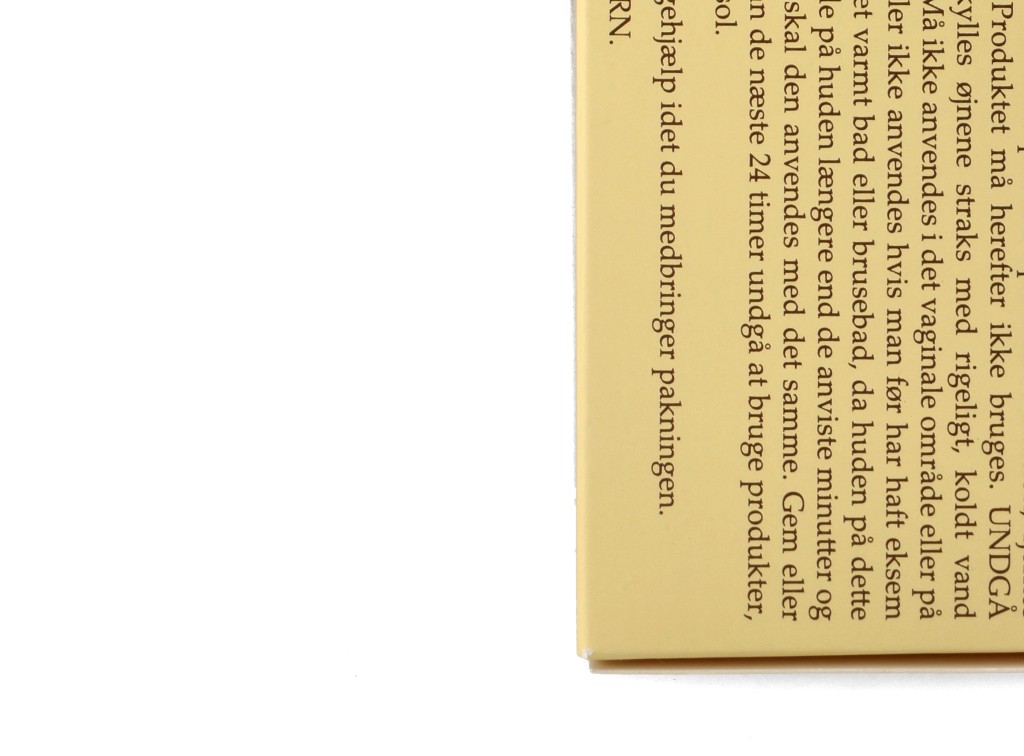 Produktet må herefter ikke bruges. UNDGÅ
kylles øjnene straks med rigeligt, koldt vand
Må ikke anvendes i det vaginale område eller på
ler ikke anvendes hvis man før har haft eksem
et varmt bad eller brusebad, da huden på dette
le på huden længere end de anviste minutter og
skal den anvendes med det samme. Gem eller
an de næste 24 timer undgå at bruge produkter,
sol.
gehjælp idet du medbringer pakningen.
RN.